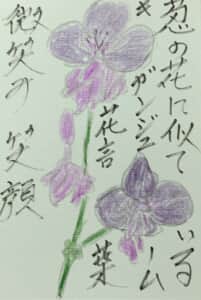 の花に似ている
ガンジューム
花言葉
微笑の笑顔